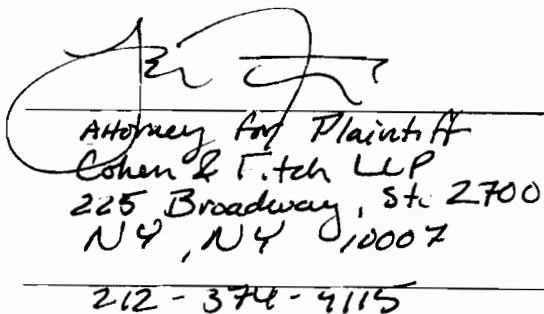 Attorney for Plaintiff
Cohen & Fitch LLP
225 Broadway, St. 2700
NY, NY 10007
212-374-9115